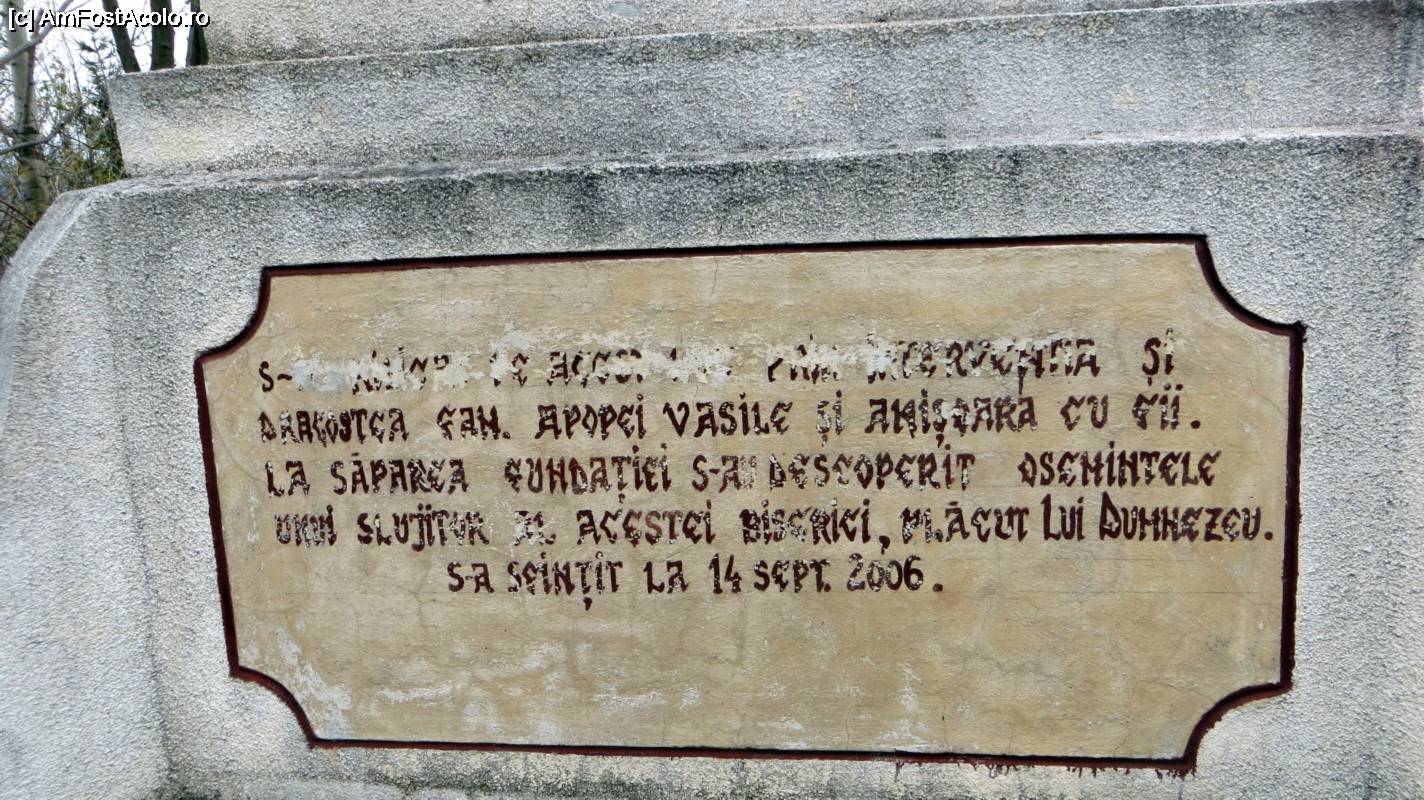 [c] AmFostAcolo.ro
PRIN INTERVENȚIA ȘI
DRAGOSTEA FAM. APOPEI VASILE ȘI ANIȘOARA CU FII.
LA SĂPAREA FUNDAȚIEI S-AU DESCOPERIT OSEMINTELE
UNUI SLUJITOR AL ACESTEI BISERICI, PLĂCUT LUI DUMNEZEU.
S-A SFINȚIT LA 14 SEPT. 2006.